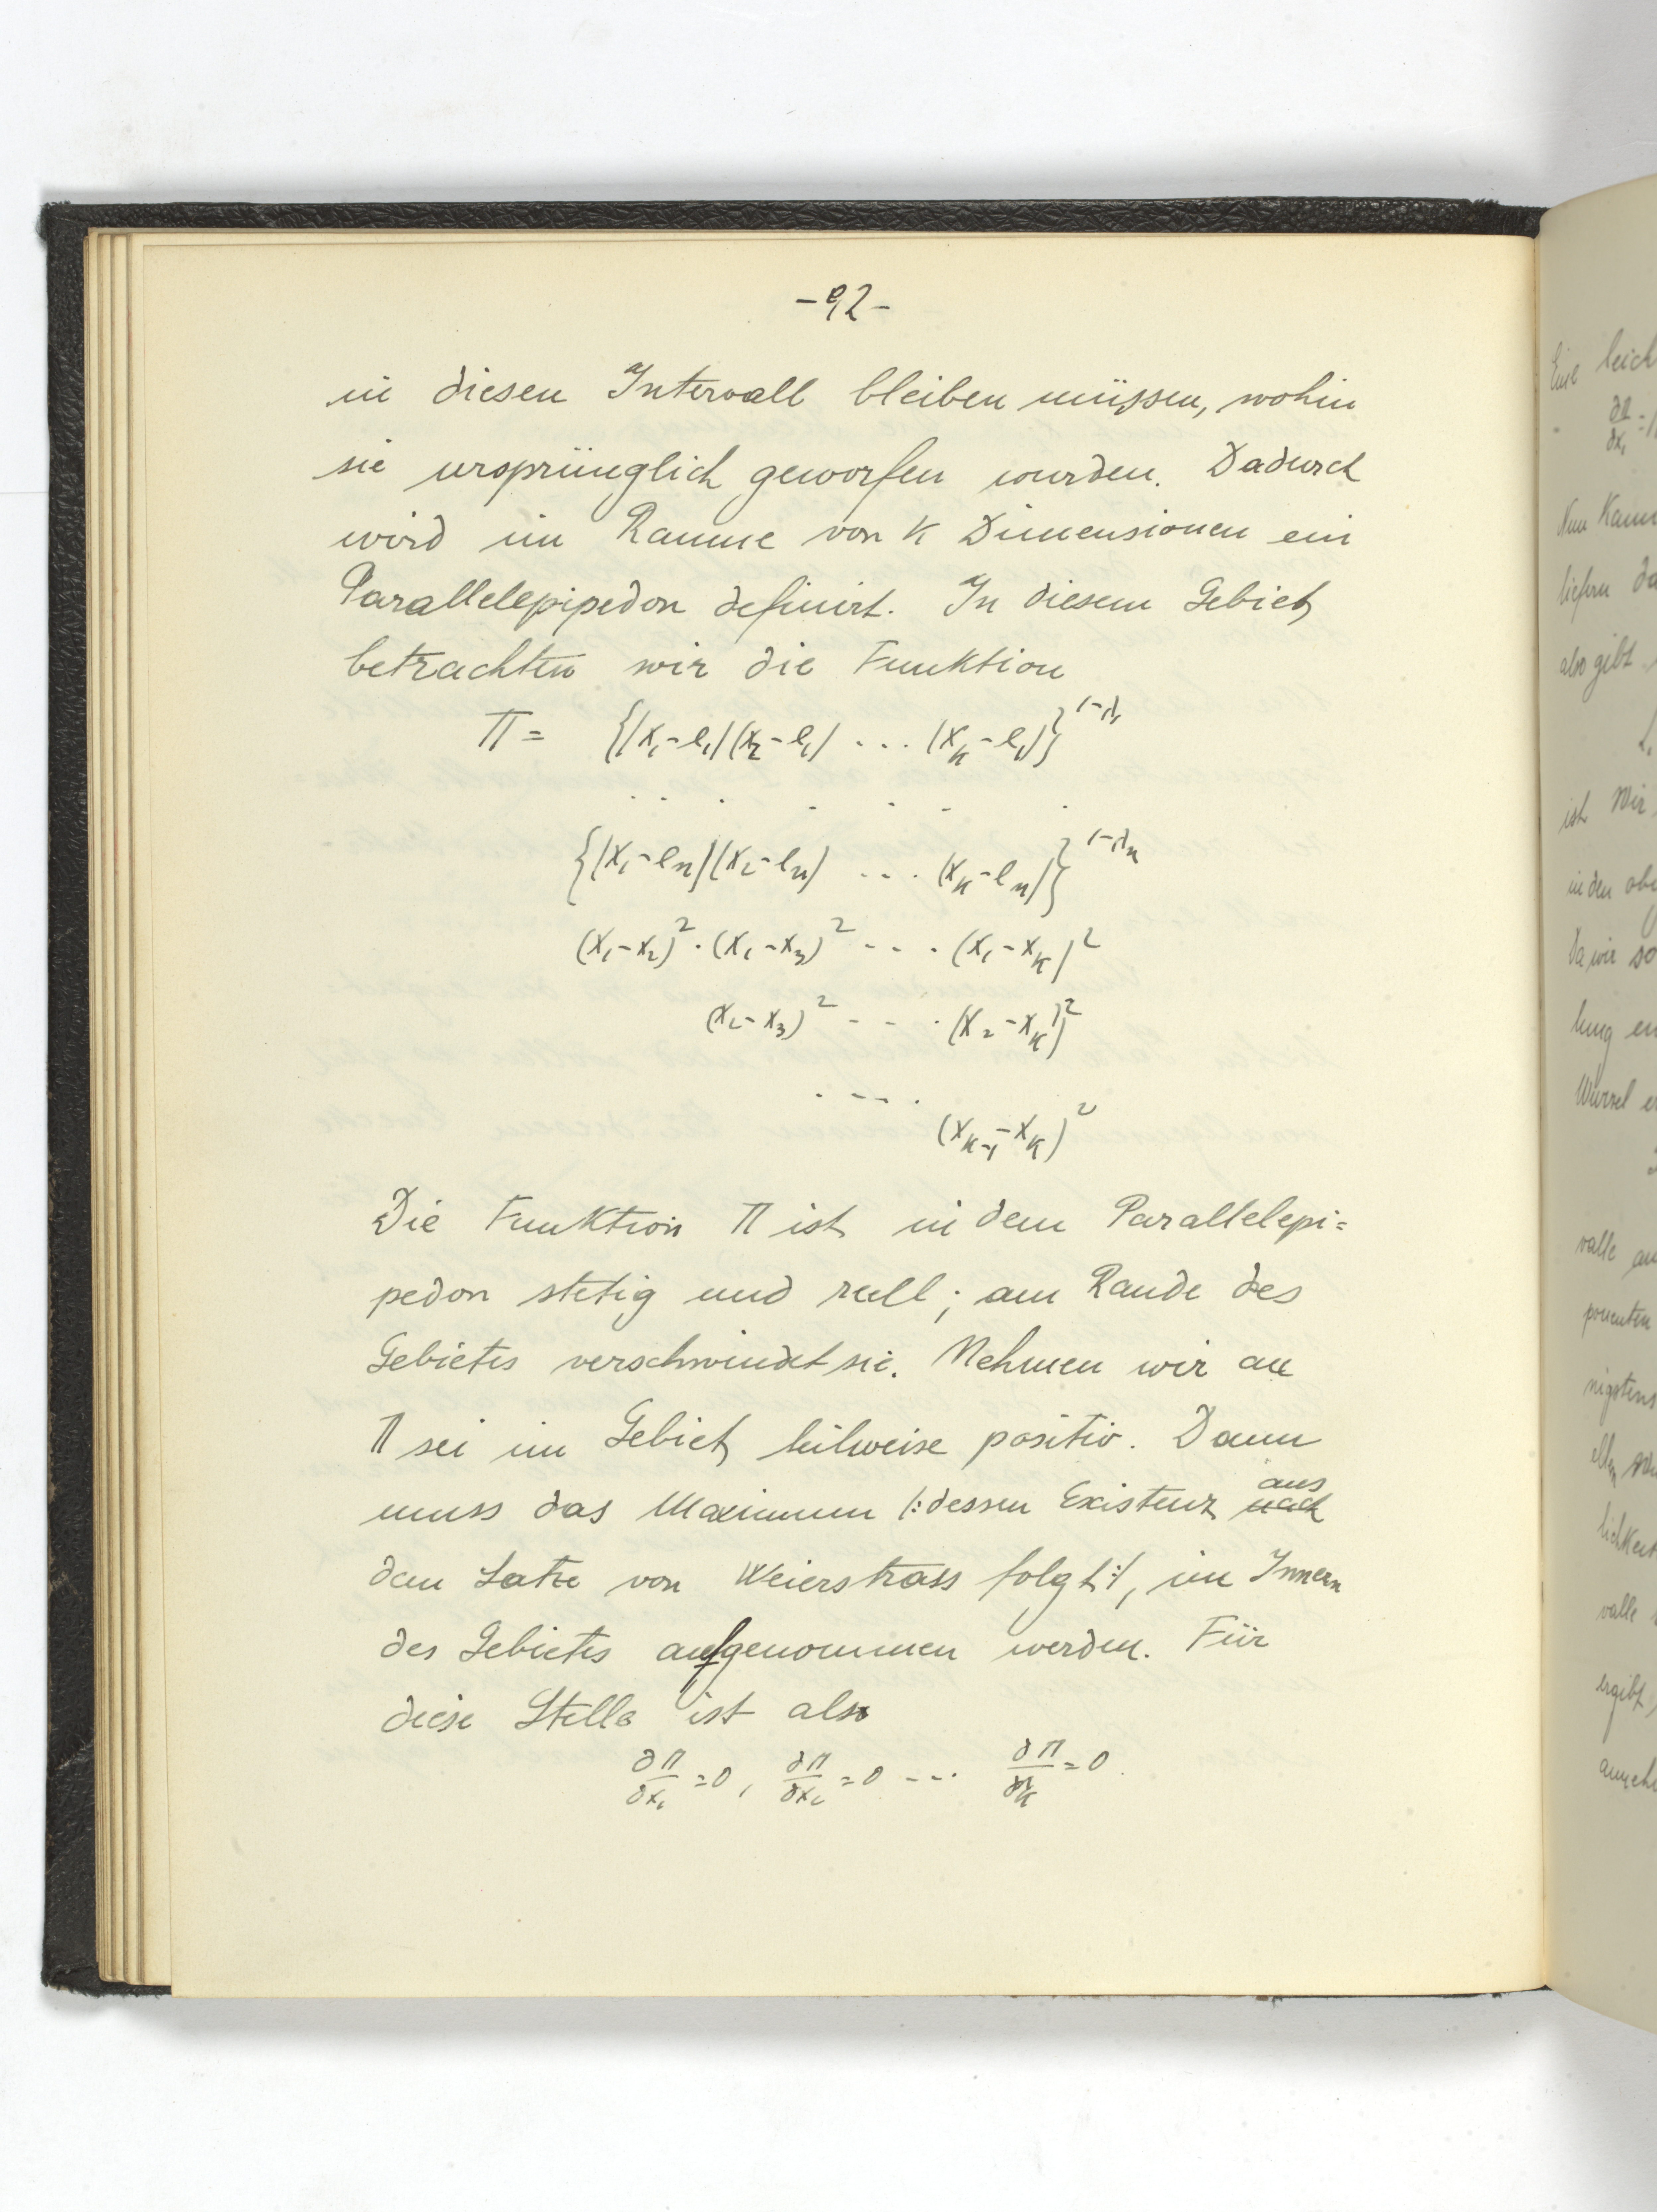 -92-
in diesen Intervall bleiben müssen, wohin
sie ursprünglich geworfen wurden. Dadurch
wird im Raume von K Dimensionen ein
Parallelepipedon definirt. In diesem Gebiet
betrachten wir die Funktion
Π = {(x₁-e₁)(x₂-e₁) ... (x_k-e₁)}^{1-λ₁}
. . . . . . .
{(x₁-e_n)(x₂-e_n) ... (x_k-e_n)}^{1-λ_n}
(x₁-x₂)² · (x₁-x₃)² --- · (x₁-x_k)²
(x₂-x₃)² -- · (x₂-x_k)²
. --- .
(x_{k-1}-x_k)²
Die Funktion Π ist in dem Parallelepi=
pedon stetig und reell; am Rande des
Gebietes verschwindet sie. Nehmen wir an
Π sei im Gebiet teilweise positiv. Dann
muss das Maximum /:dessen Existenz nach aus
dem Satze von Weierstrass folgt:/, im Innern
des Gebietes aufgenommen werden. Für
diese Stelle ist also
∂Π/∂x₁ = 0, ∂Π/∂x₂ = 0 --- ∂Π/∂x_k = 0.
Eine leich
∂Π/∂x₁ =
Nun Kann
liefern da
also gibt
ist Wir
in den obe
Da wir so
lung en
Wurzel e
valle an
ponenten
nigstens
lichkeit
valle
ergibt,